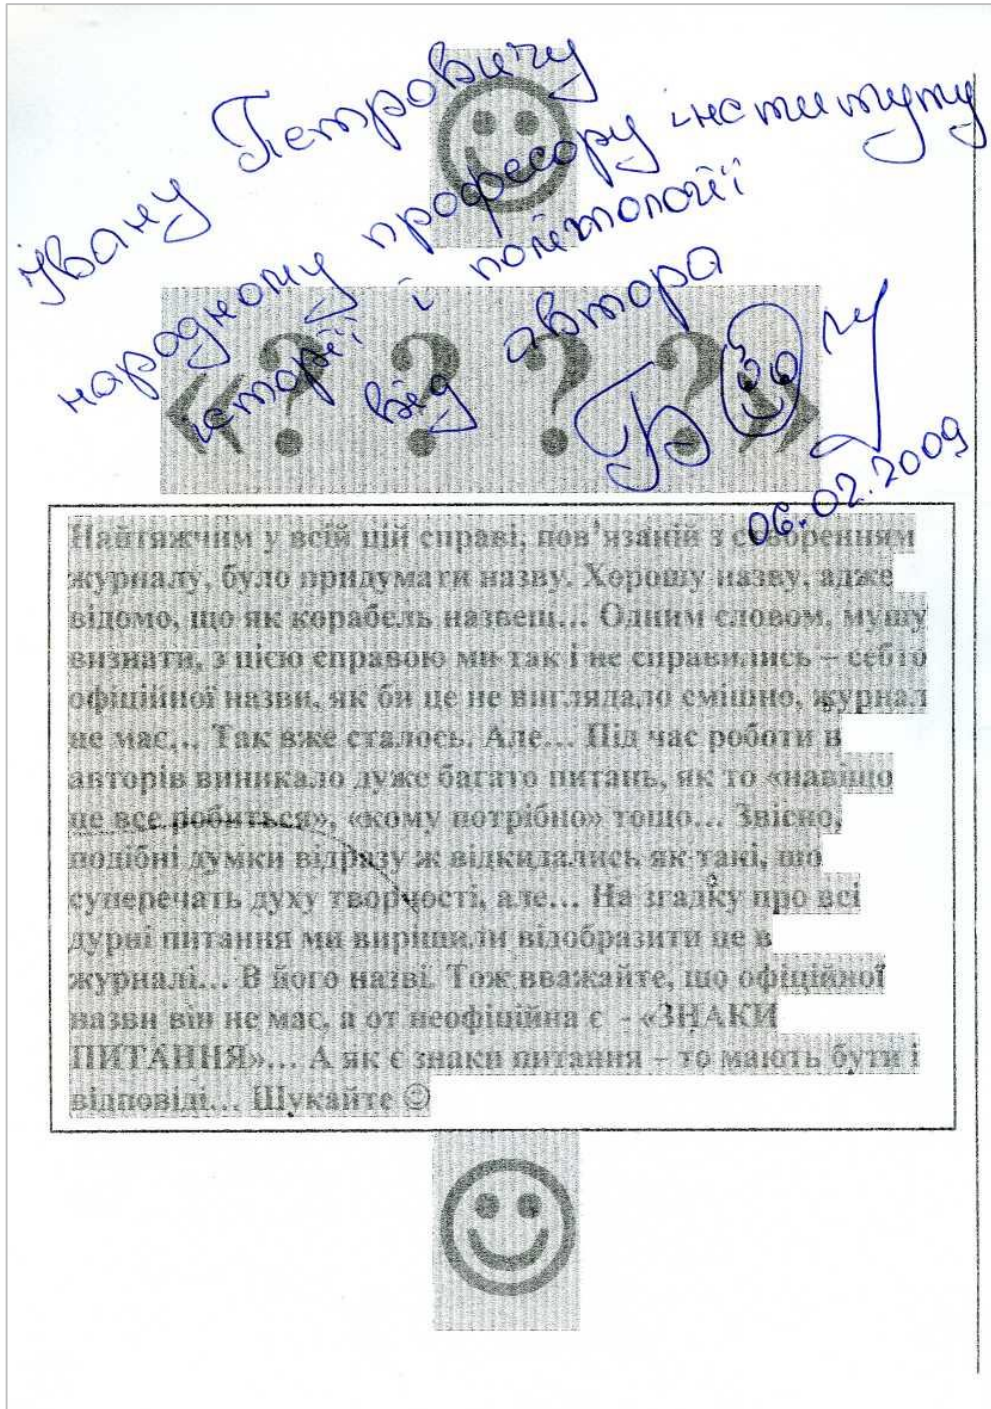 Івану Петровичу
народному професору інституту
історії і політології
від автора
06.02.2009
«? ? ? ?»
Найтяжчим у всій цій справі, пов’язаній з створенням
журналу, було придумати назву. Хорошу назву, адже
відомо, що як корабель назвеш... Одним словом, мушу
визнати, з цією справою ми так і не справились – себто
офіційної назви, як би це не виглядало смішно, журнал
не має... Так вже сталось. Але... Під час роботи в
авторів виникало дуже багато питань, як то «навіщо
це все робиться», «кому потрібно» тощо... Звісно,
подібні думки відразу ж відкидались як такі, що
суперечать духу творчості, але... На згадку про всі
дурні питання ми вирішили відобразити це в
журналі... В його назві. Тож вважайте, що офіційної
назви він не має, а от неофіційна є - «ЗНАКИ
ПИТАННЯ»... А як є знаки питання – то мають бути і
відповіді... Шукайте ☺